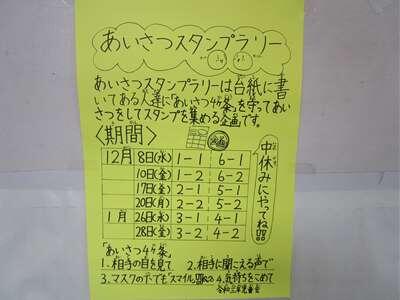 あいさつスタンプラリー
あいさつスタンプラリーは台紙に書
いてある人達に「あいさつ4ヶ条」を守ってあい
さつをしてスタンプを集める企画です。
〈期間〉
12月 8日(水) 1-1 6-1
10日(金) 1-2 6-2
17日(金) 2-1 5-1
20日(月) 2-2 5-2
1月 26日(水) 3-1 4-1
28日(金) 3-2 4-2
中休みにやってね!!
「あいさつ4ヶ条」
1.相手の目を見て 2.相手に聞こえる声で
3.マスクの下でも"スマイル" 4.気持ちをこめて
令和三年児童会